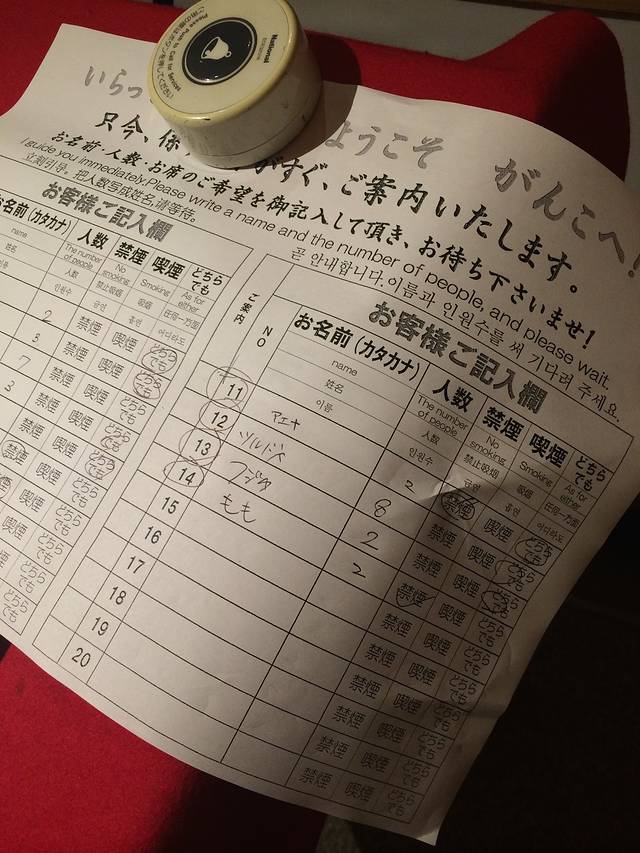 National
Please Push to Call for Service
ご用の際はボタンを押してください
いらっ ようこそ がんこへ!
只今、係 がすぐ、ご案内いたします。
お名前・人数・お席のご希望を御記入して頂き、お待ち下さいませ!
I guide you immediately.Please write a name and the number of people, and please wait.
立刻引导。把人数写成姓名,请等待。
곧 안내합니다.이름과 인원수를 써 기다려 주세요.
お客様ご記入欄
お名前(カタカナ) 人数 禁煙 喫煙 どちらでも
name The number of people No smoking Smoking As for either
姓名 人数 禁止吸烟 吸烟 任何一方面
이름 인원수 금연 흡연 어디라도
2 禁煙 喫煙 どちらでも
3 禁煙 喫煙 どちらでも
7 禁煙 喫煙 どちらでも
3 禁煙 喫煙 どちらでも
禁煙 喫煙 どちらでも
禁煙 喫煙 どちらでも
喫煙 どちらでも
喫煙 どちらでも
どちらでも
どちらでも
お客様ご記入欄
ご案内 NO お名前(カタカナ) 人数 禁煙 喫煙 どちらでも
name The number of people No smoking Smoking As for either
姓名 人数 禁止吸烟 吸烟 任何一方面
이름 인원수 금연 흡연 어디라도
11 2 禁煙 喫煙 どちらでも
12 8 禁煙 喫煙 どちらでも
13 フジタ 2 禁煙 喫煙 どちらでも
14 もも 2 禁煙 喫煙 どちらでも
15 禁煙 喫煙 どちらでも
16 禁煙 喫煙 どちらでも
17 禁煙 喫煙 どちらでも
18 禁煙 喫煙 どちらでも
19 禁煙 喫煙 どちらでも
20 禁煙 喫煙 どちらでも